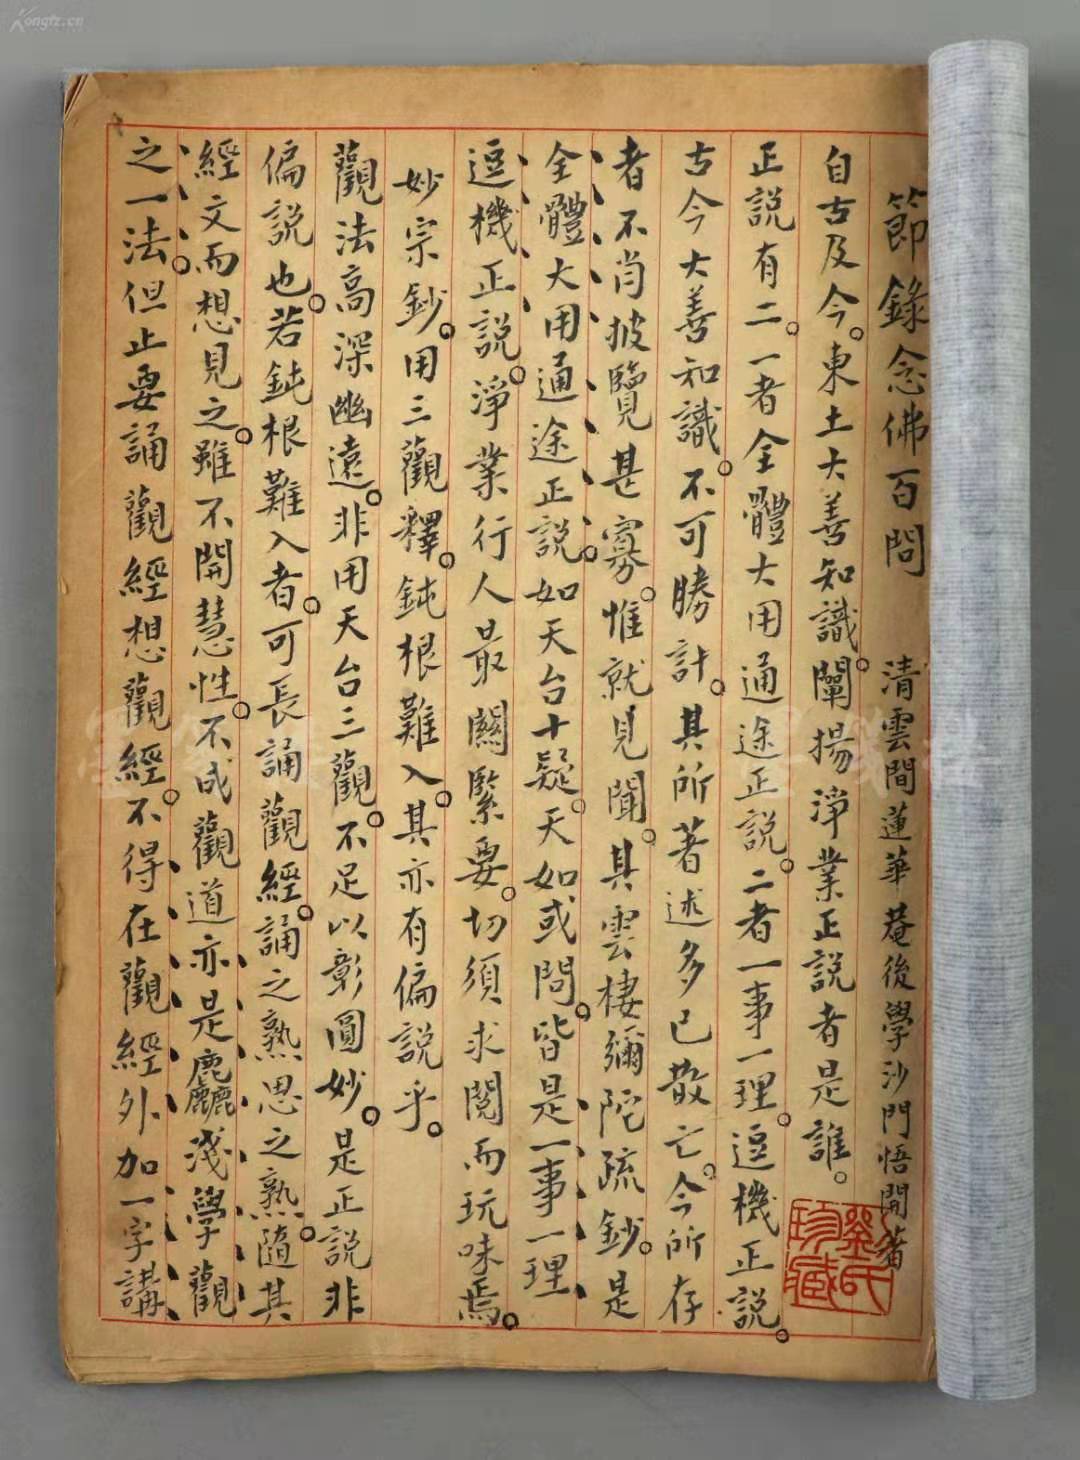 節錄念佛百問　清雲間蓮華菴後學沙門悟開著
自古及今。東土大善知識。闡揚淨業正說者是誰。
正說有二。一者全體大用通途正說。二者一事一理。逗機正說。
古今大善知識。不可勝計。其所著述多已散亡。今所存
者不肖披覽甚寡。惟就見聞。其雲棲彌陀疏鈔。是
全體大用通途正說。如天台十疑。天如或問。皆是一事一理
逗機正說。淨業行人最關緊要。切須求閱而玩味焉。
妙宗鈔。用三觀釋。鈍根難入。其亦有偏說乎。
觀法高深幽遠。非用天台三觀。不足以彰圓妙。是正說非
偏說也。若鈍根難入者。可長誦觀經。誦之熟思之熟。隨其
經文而想見之。雖不開慧性。不成觀道亦是麤淺學觀
之一法。但止要誦觀經想觀經。不得在觀經外加一字講
劉氏珍藏
Kongfz.cn